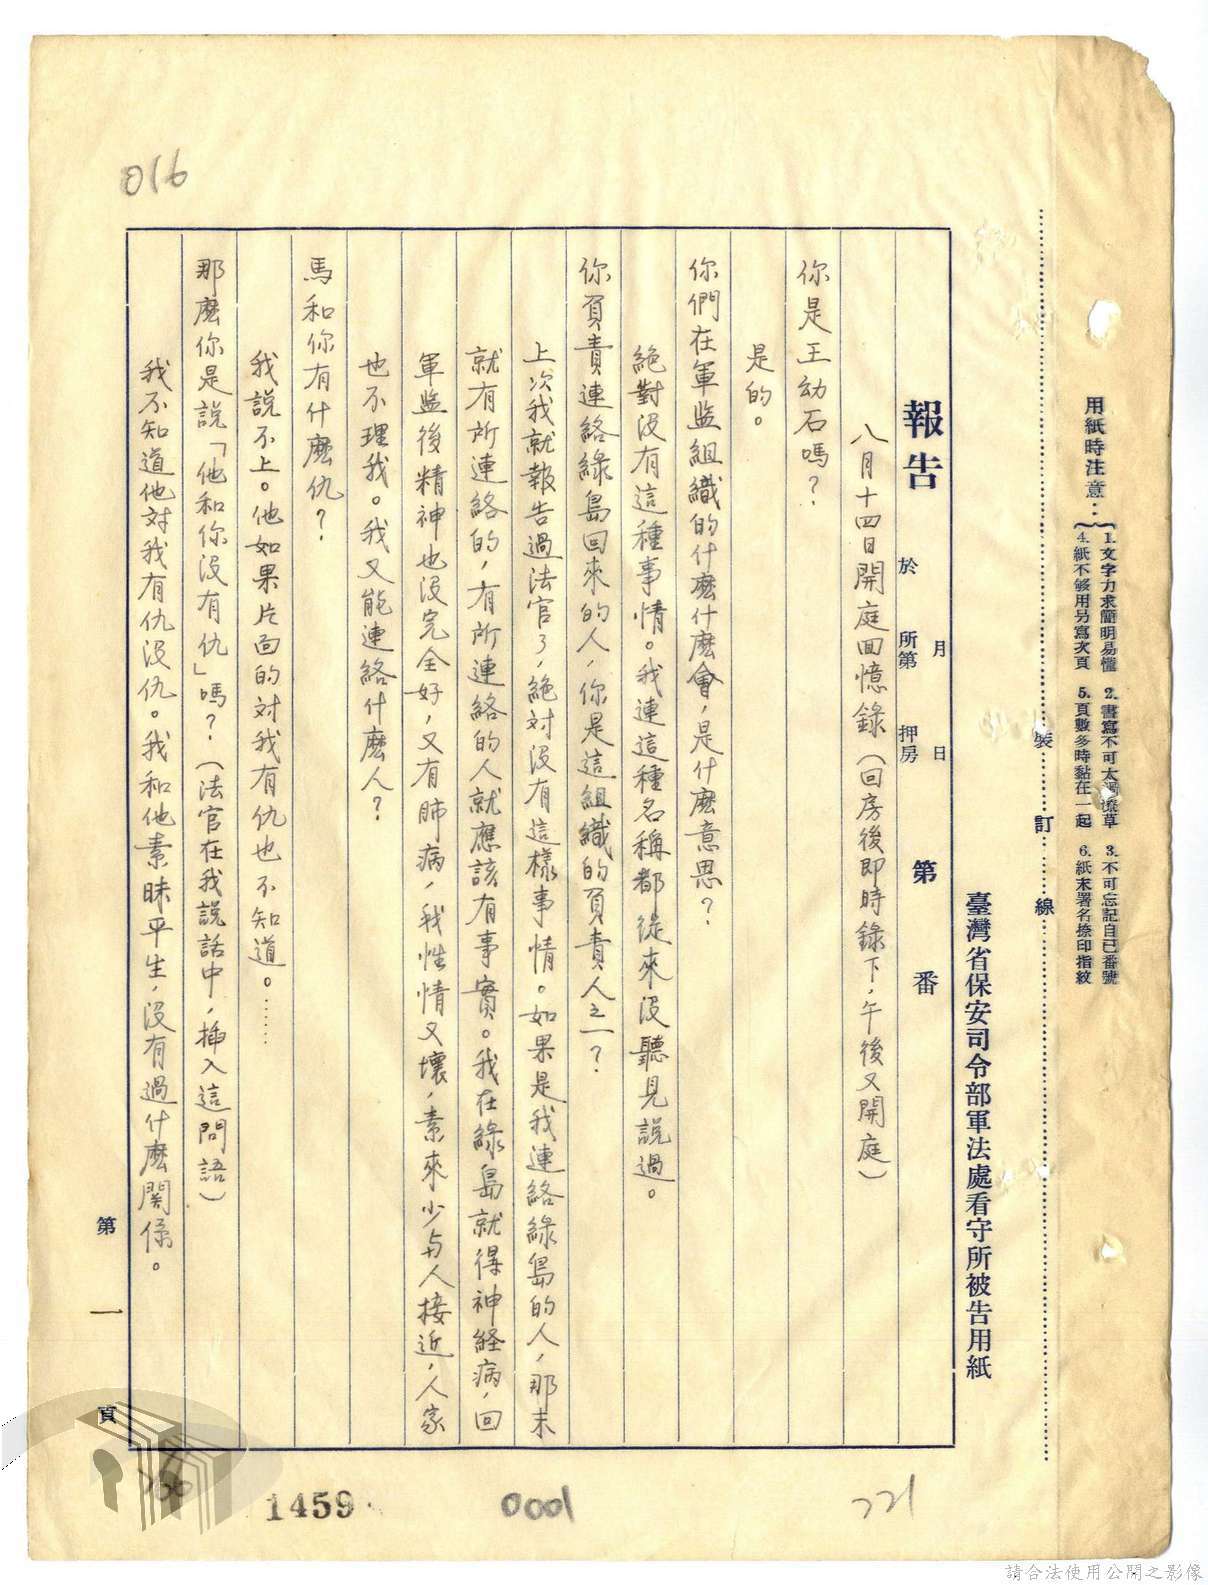 用紙時注意：
1.文字力求簡明易懂 2.書寫不可太潦草 3.不可忘記自己番號
4.紙不够用另寫次頁 5.頁數多時黏在一起 6.紙末署名捺印指紋
裝訂線
臺灣省保安司令部軍法處看守所被告用紙
報告 於 所第 押房 月 日 第 番
八月十四日開庭回憶錄（回房後即時錄下，午後又開庭）
你是王幼石嗎？
是的。
你們在軍監組織的什麽什麽會，是什麽意思？
絕對没有這種事情。我連這種名稱都從來没聽見説過。
你負責連絡綠島回來的人，你是這組織的負責人之一？
上次我就報告過法官了，絕対没有這樣事情。如果是我連絡綠島的人，那末
就有所連絡的，有所連絡的人就應該有事實。我在綠島就得神経病，回
軍監後精神也没完全好，又有肺病，我性情又壞，素來少与人接近，人家
也不理我。我又能連絡什麽人？
馬和你有什麽仇？
我説不上。他如果片面的対我有仇也不知道。……
那麽你是説「他和你没有仇」嗎？（法官在我説話中，揷入這問語）
我不知道他対我有仇没仇。我和他素昧平生，没有過什麽関係。
第一頁
016
1459
0001
221
請合法使用公開之影像